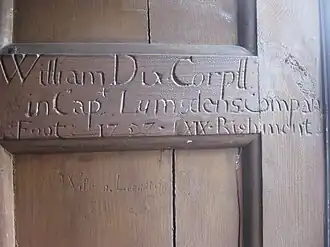 William Dix Corpll
in Capt Lumsdens Compan
Foot: 1757 XIX Rigiment
Will